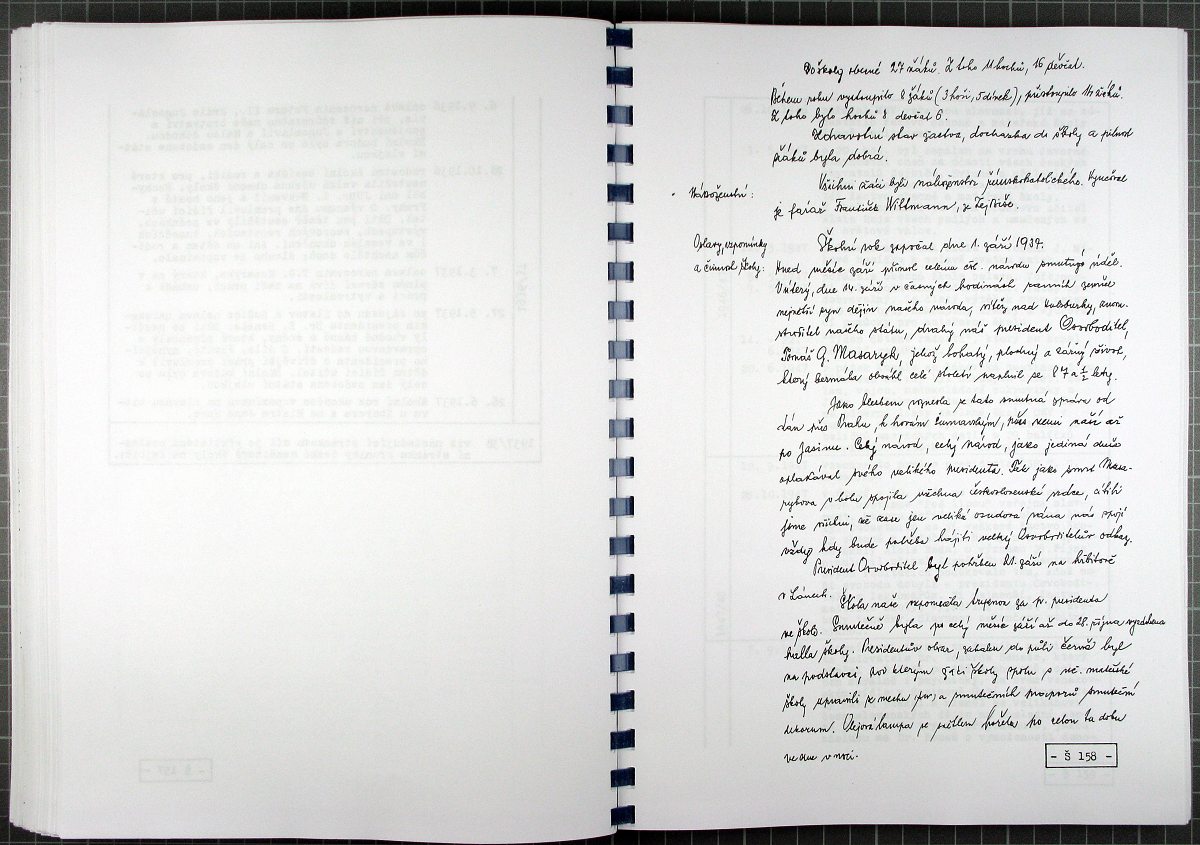 Do školy obecné 27 žáků. Z toho 11 hochů, 16 děvčat.
Během roku vystoupilo 8 žáků (3 hoši, 5 dívek), přistoupilo 14 žáků.
Z toho bylo hochů 8 děvčat 6.
Zdravotní stav žactva, docházka do školy a pilnost
žáků byla dobrá.
Náboženství:
Všichni žáci byli náboženství římskokatolického. Vyučoval
je farář František Wittmann, ze
Oslavy, vzpomínky
a činnost školy:
Školní rok započal dne 1. září 1937.
Hned měsíc září přinesl celému čsl. národu smutný úděl.
V úterý, dne 14. září v časných hodinách ranních zemřel
největší syn dějin našeho národa, vítěz nad Habsburky,
stavitel našeho státu, drahý náš president Osvoboditel,
Tomáš G. Masaryk, jehož bohatý, plodný a zářný život,
který bezmála obsáhl celé století naplnil se 87 a ½ lety.
Jako bleskem roznesla se tato smutná zpráva od
přes Prahu, k horám šumavským, přes zemi naší až
po Jasinu. Celý národ, celý národ, jako jediná duše
oplakával svého velikého presidenta. Tak jako smrt Masa-
rykova v bolu spojila všechna československá srdce, cítili
jsme všichni, že zase jen veliká osudová rána nás spojí
vždy, kdy bude potřeba hájiti veliký Osvoboditelův odkaz.
President Osvoboditel byl pohřben 21. září na hřbitově
v Lánech.
Škola naše vzpomněla tryznou za p. presidenta
ve škole. Smutečně byla po celý měsíc září až do 28. října vyzdobena
školy. Presidentův obraz, zahalen do půli černě byl
na podstavci, pod kterým žáci školy spolu s mateřské
školy upravili z mechu a smutečních praporů smuteční
dekorum. Olejová lampa se světlem hořela po celou tu dobu
ve dne v noci.
- Š 158 -